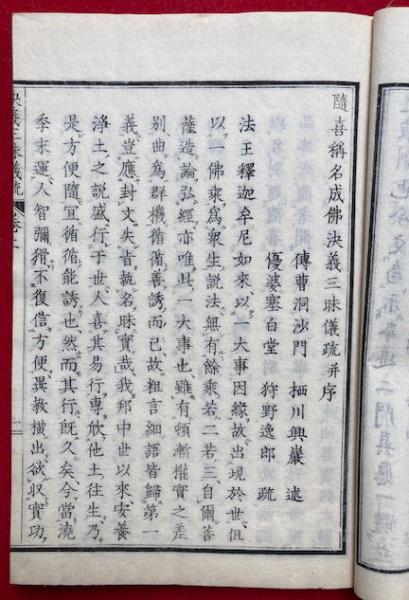 隨喜稱名成佛決義三昧儀疏并序
傳曹洞沙門 栖川興巖 述
優婆塞白堂 狩野逸郎 疏
法王釋迦牟尼如來以一大事因緣故出現於世但
以一佛乘爲衆生說法無有餘乘若二若三自爾菩
薩造論弘經亦唯此一大事也雖有頓漸權實之差
別曲爲群機循循善誘而已故粗言細語皆歸第一
義豈應封文失旨執名昧實哉我邦中世以來安養
淨土之說盛行于世人喜其易行專欣他土往生乃
是方便隨宜循循能誘也然而其行既久矣今當澆
季末運人智彌猾不復信方便異教横出欲収實功
決義三昧儀疏 卷上